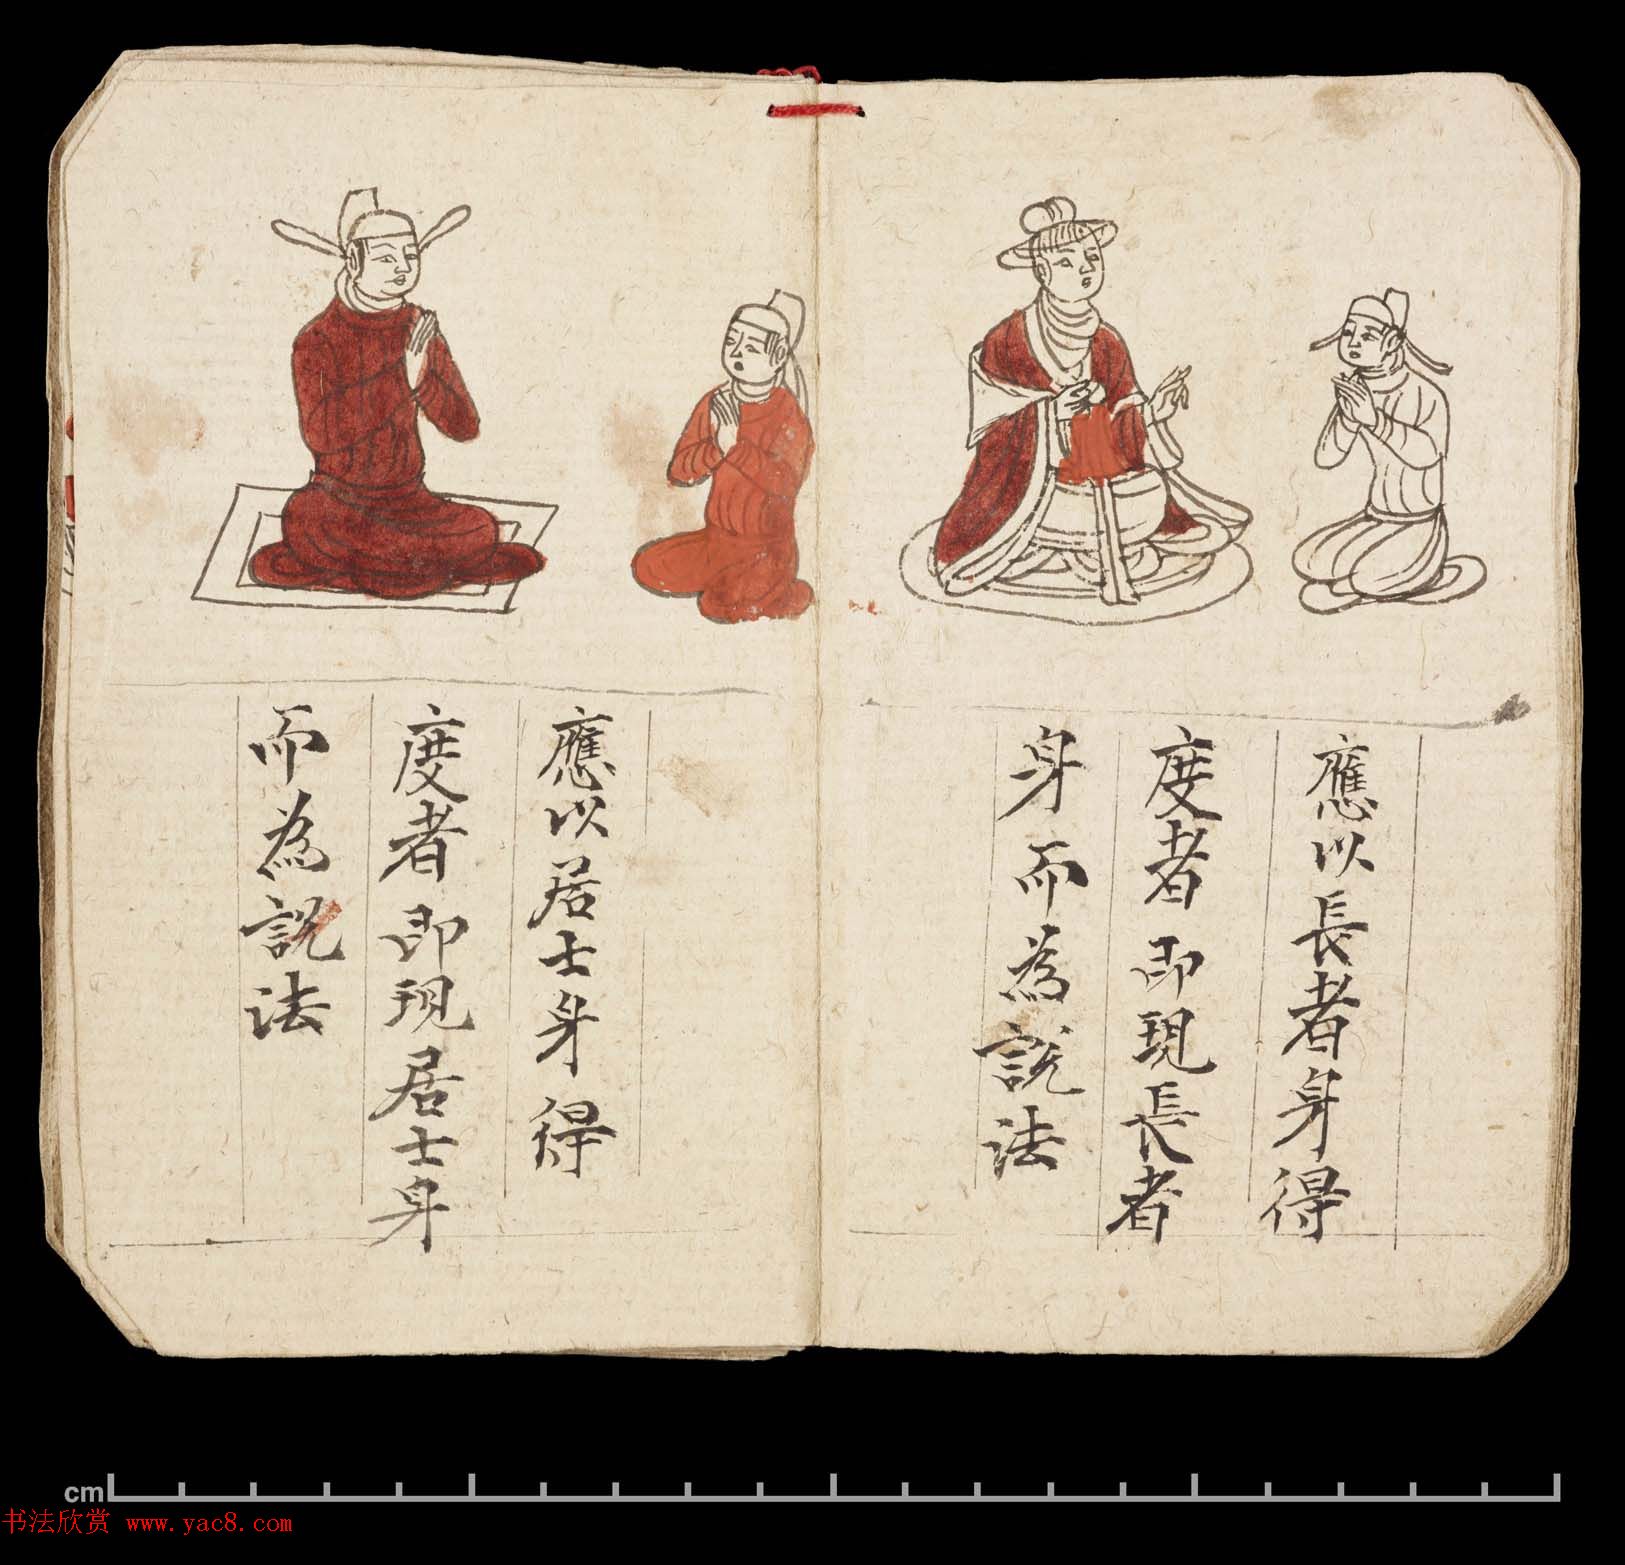 應以長者身得
度者即現長者
身而為說法
應以居士身得
度者即現居士身
而為說法
cm
书法欣赏 www.yac8.com